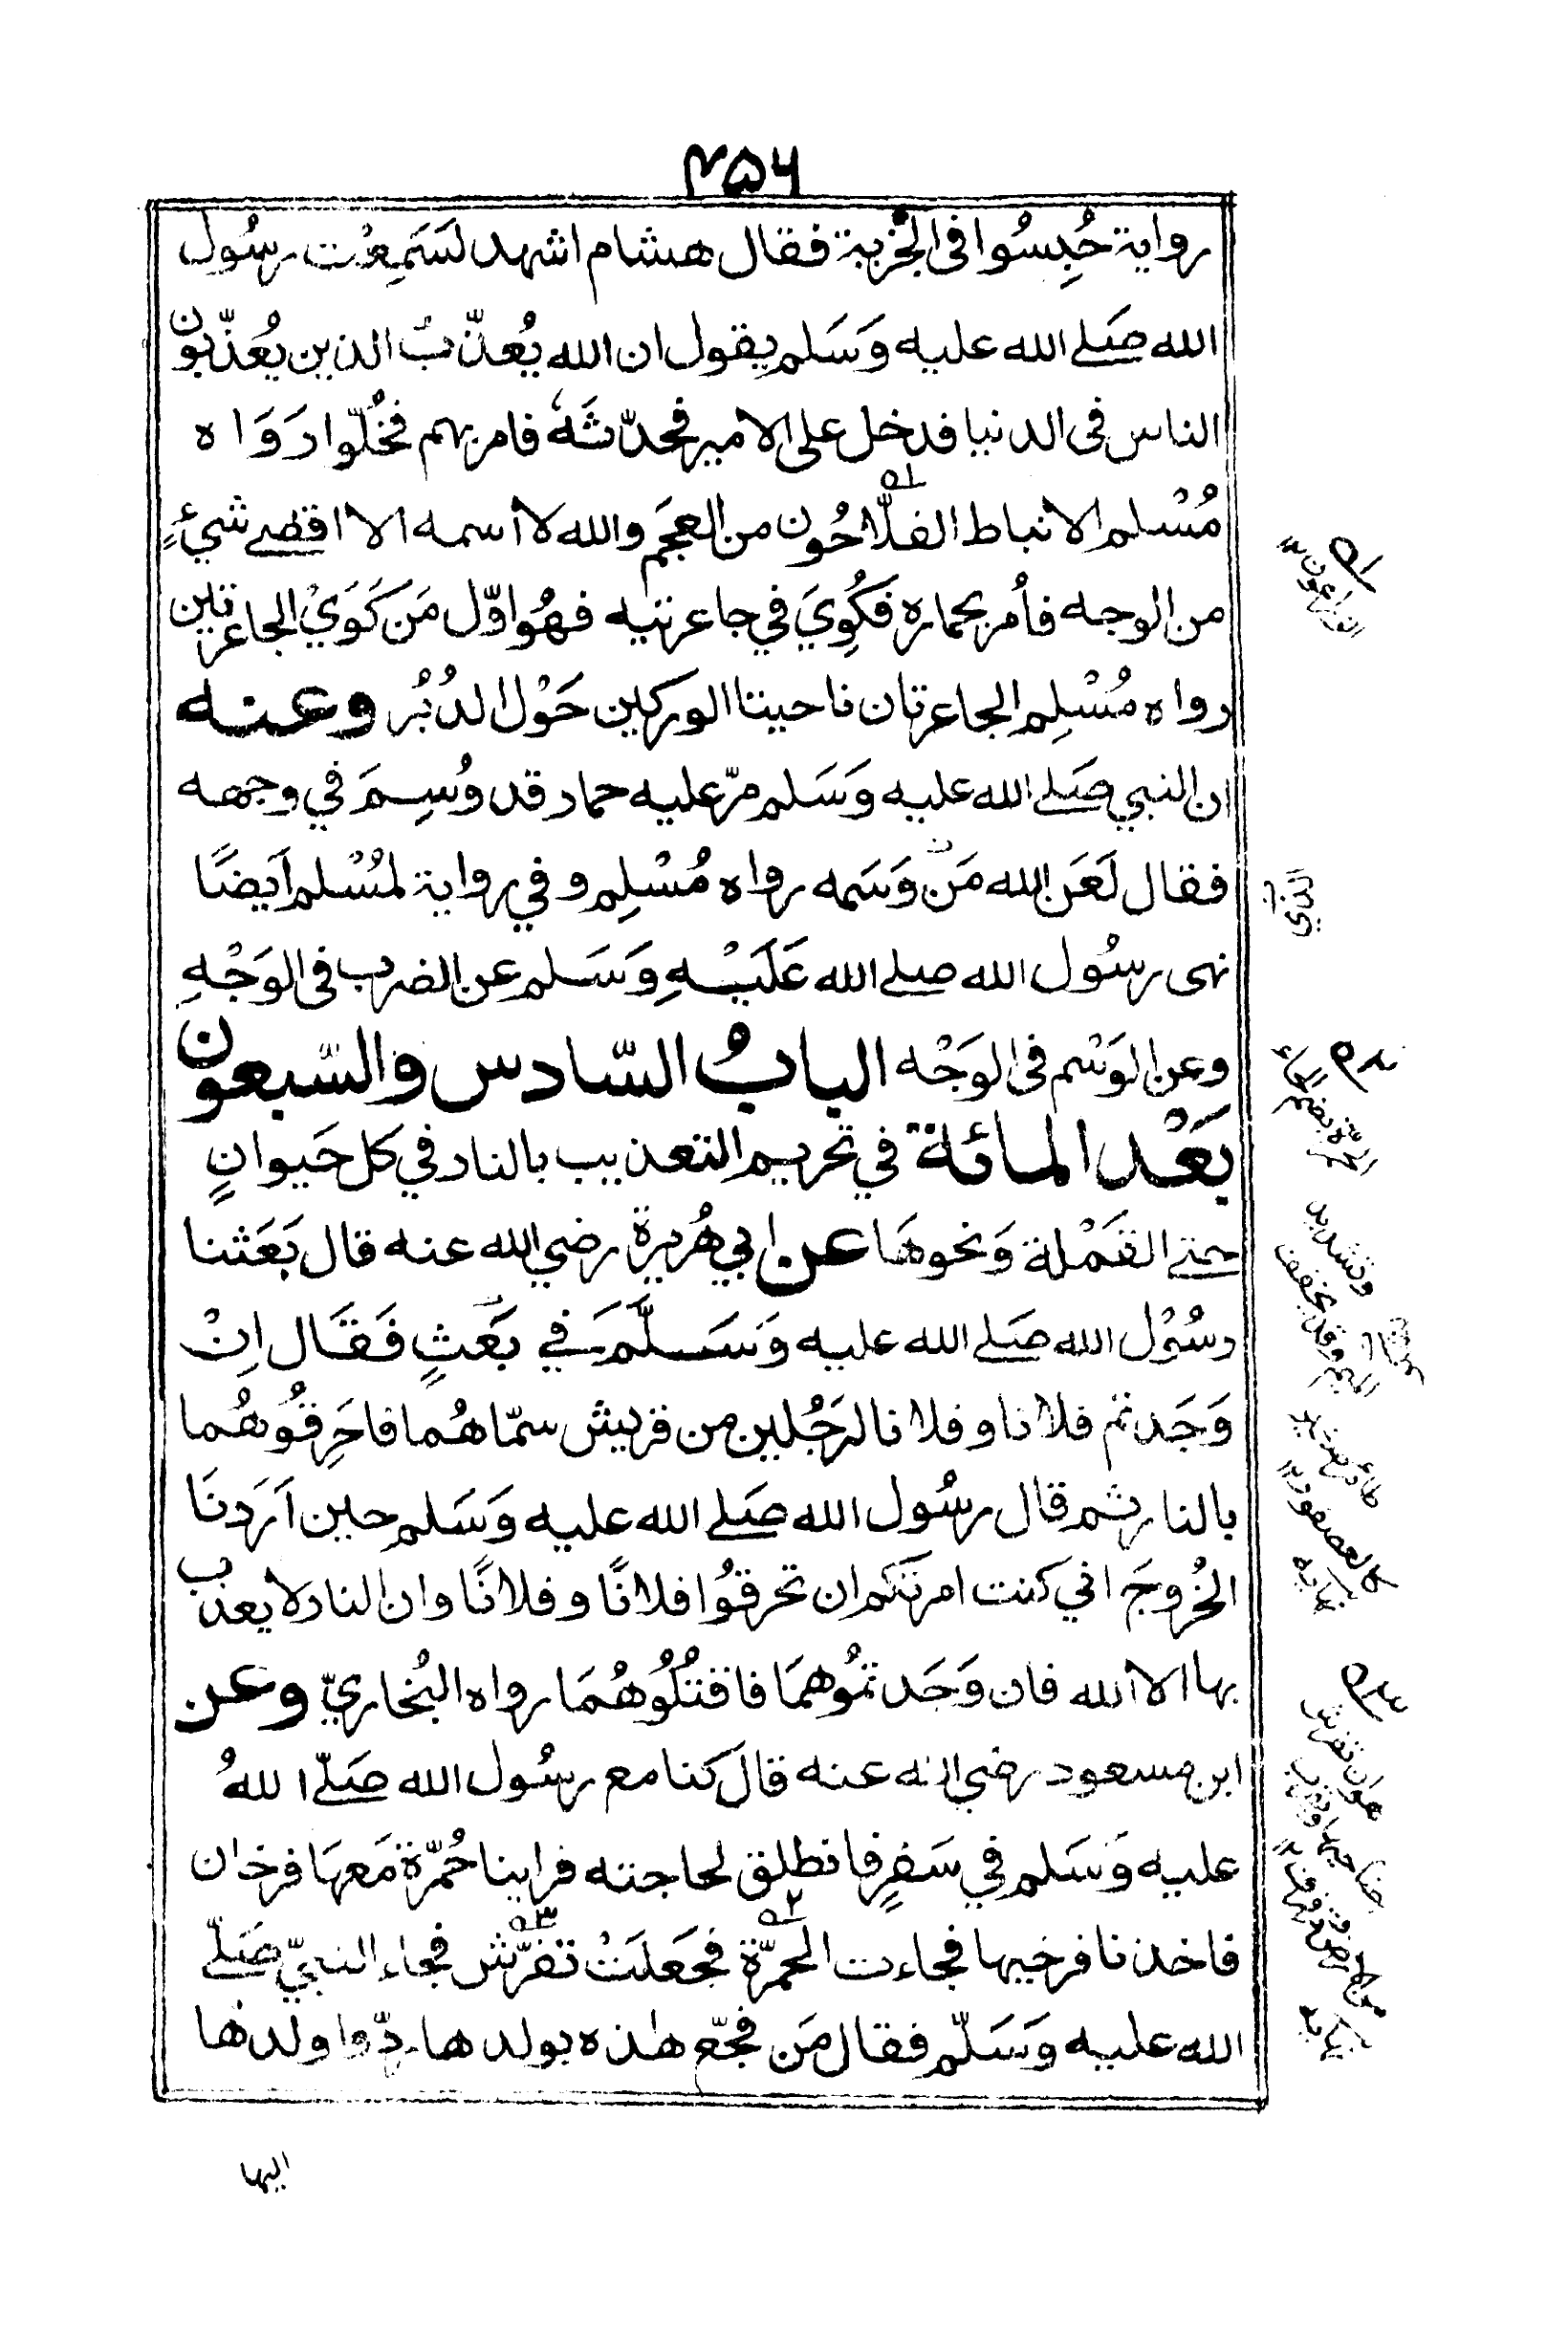 ۴۵۶
رواية حُبِسُوا فى الجزية فقال هشام اشهد لسَمِعْت رسُول
الله صَلے الله عليه وَسَلم يقول ان الله يُعذّبُ الذين يُعَذّبون
الناس فى الدنيا فدخل على الامير فحدّثَهٗ فامر بهم فخُلّوا رَوَاه
مُسْلم الانباط الفلّاحُون من العجَم والله لا أسمه الا اقصے شيءٍ
من الوجه فأمر بحماره فكُوِيَ في جاعرتيه فهُوَ اوّل مَن كَوَيْ الجاعرتين
رواه مُسْلِم الجاعرتان ناحيتا الوركين حَوْل الدُبُر وعنه
ان النبي صَلے الله عليه وَسَلم مرّ عليه حمار قد وُسِمَ في وجهه
فقال لَعَن الله مَن وَسَمه رواه مُسْلِم و في رواية لمُسْلم اَيضًا
نهى رسُول الله صلے الله عَلَيْهِ وَسَلم عن الضرب فى الوَجْهِ
وعن الوَسْم فى الوَجْه البابُ السّادس والسّبعون
بَعْد المائة في تحريم التعذيب بالنار في كل حَيوانٍ
حتے القَمْلة وَنحوهَا عن ابي هُريرة رضي الله عنه قال بَعَثنا
رسُوْل الله صَلے الله عليه وَسَلَّمَ في بَعْثٍ فَقَال اِنْ
وَجَدتم فلانا و فلانا لرَجُلين من قريش سمّاهُما فاحَرِقُوهُما
بالنار ثم قال رسُول الله صَلے الله عليه وَسَلم حين اَرَدنَا
الخُروجَ اني كنت امرتكم ان تحرقُوا فلانًا و فلانًا وان النار لا يعذب
بها الا الله فان وَجَدتمُوهمَا فاقتُلُوهُمَا رواه البُخاريّ وعن
ابن مسعود رضي الله عنه قالَ كنا مع رسُول الله صَلّے اللهُ
عليه وَسَلم في سَفرٍ فانطلق لحاجته فراينا حُمّرة مَعهَا فرخان
فاخذنا فرخيها فجاءت الحمرّة فجَعلَتْ تفرّش فجاء النبيّ صَلّے
الله عليه وَسَلّم فقال مَن فجّع هٰذه بولدها ردّوا ولدها
اليها
الذي
الحمّرة بضم الحاء
وتشديد
الميم وقد يخفف
كالعصفور
نهاية
هو ان تفرش
جناحيها وتقرب
من الارض وترفرف
نهاية